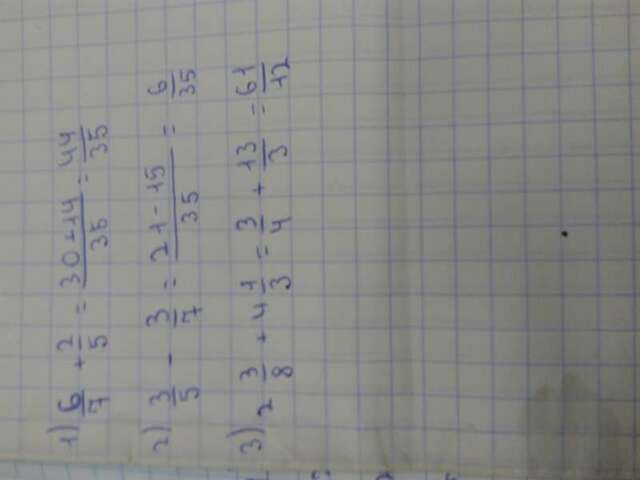 1) 6/7 + 2/5 = 30+14/35 = 44/35
2) 3/5 - 3/7 = 21-15/35 = 6/35
3) 2 3/8 + 4 1/3 = 3/4 + 13/3 = 61/12